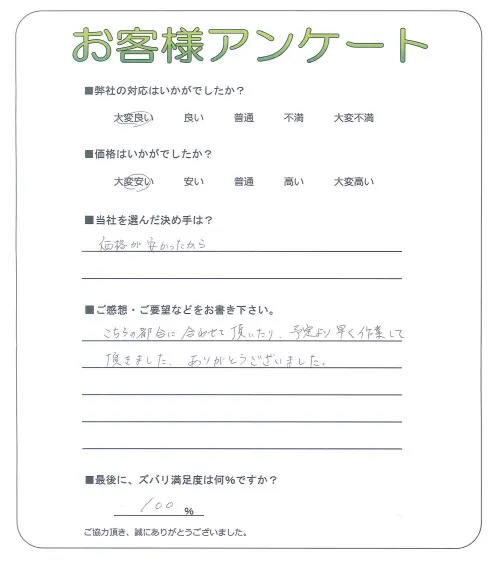 お客様アンケート
■弊社の対応はいかがでしたか？
大変良い 良い 普通 不満 大変不満
■価格はいかがでしたか？
大変安い 安い 普通 高い 大変高い
■当社を選んだ決め手は？
価格が安かったから
■ご感想・ご要望などをお書き下さい。
こちらの都合に合わせて頂いたり、予定より早く作業して
頂きました。ありがとうございました。
■最後に、ズバリ満足度は何%ですか？
100 %
ご協力頂き、誠にありがとうございました。